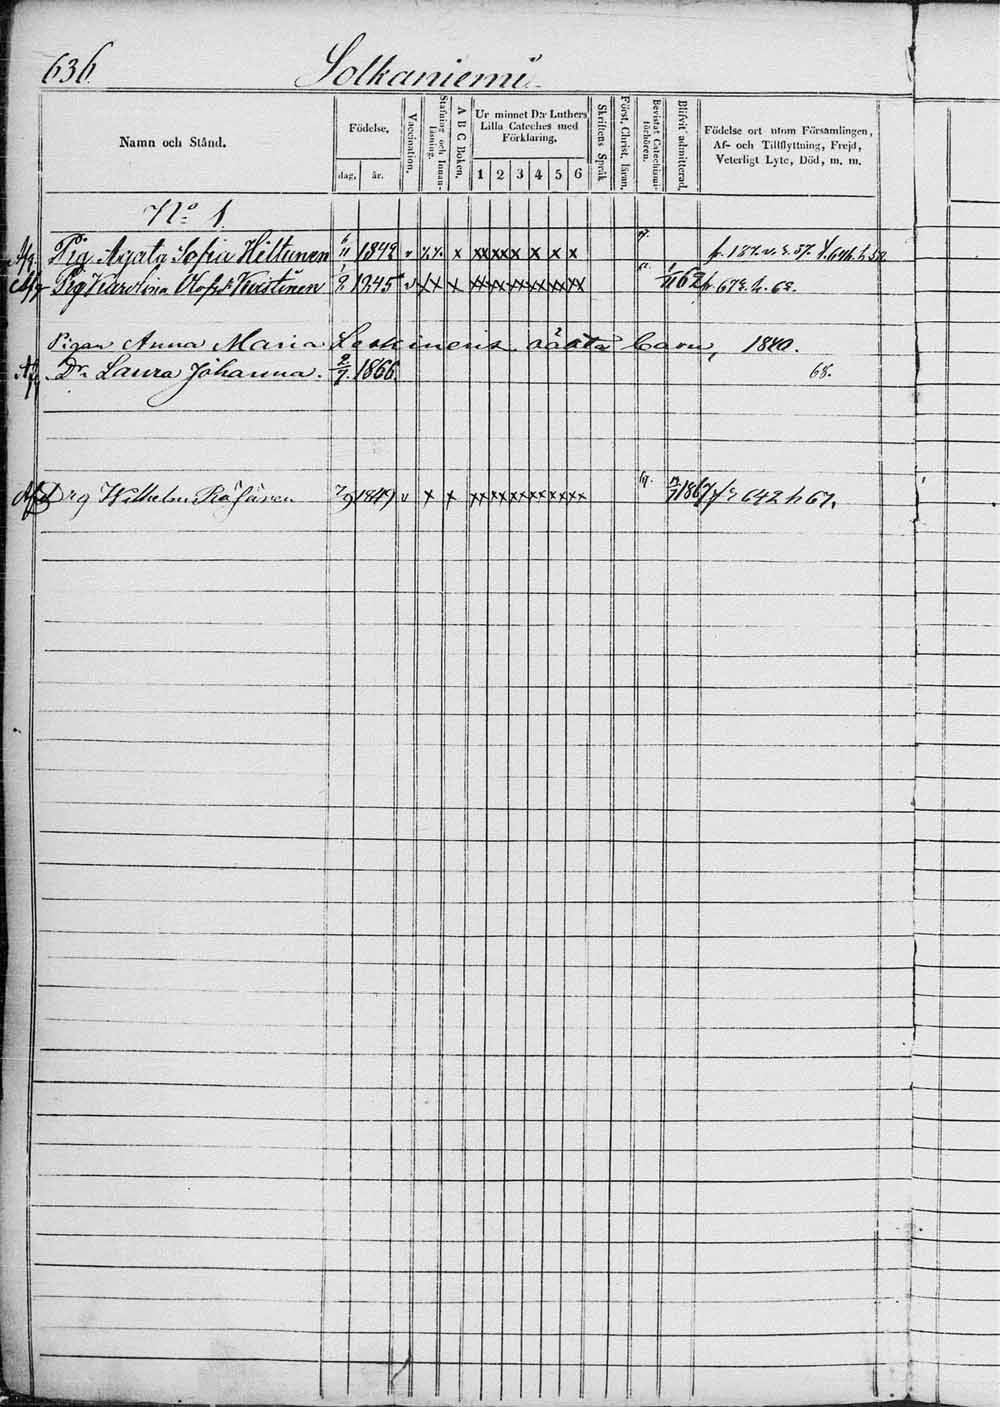 636.
Solkaniemi
Namn och Stånd.
Födelse,
dag, år.
Vaccination.
Stafning och Innanläsning.
A B C Boken.
Ur minnet D:r Luthers Lilla Cateches med Förklaring.
1 2 3 4 5 6
Skriftens Språk
Först. Christ. läran.
Bevistat Catechismiförhören.
Blifvit admitterad.
Födelse ort utom Församlingen, Af- och Tillflyttning, Frejd, Veterligt Lyte, Död, m. m.
No 1
Afg Pig. Agata Sofia Hiltunen 6/11 1842 v x x x xx xx x x x x
Afg Pig Karolina Olofsd. 1/2 1845 v x x x xx xx xx xx xx xx 62
Pigan Anna Maria oäkta barn, 1840.
Afg Dr. Laura Johanna. 2/7 1866. 68.
Afg Drg Wilhelm 7/9 1849 v x x xx xx xx xx xx xx 1867 642 h 67.